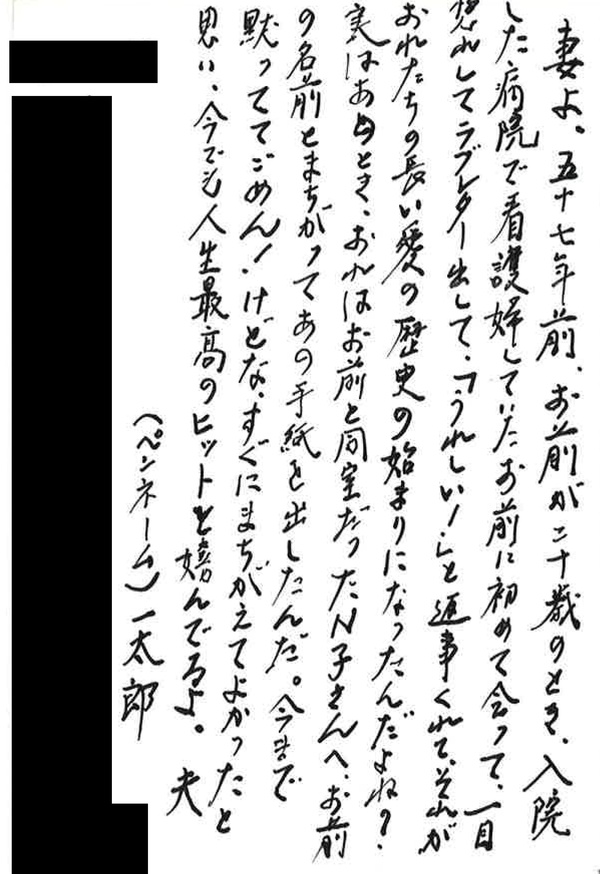 妻よ。五十七年前、お前が二十歳のとき、入院
した病院で看護婦していたお前に初めて会って、一目
惚れしてラブレター出して、「うれしい!」と返事くれて、それが
おれたちの長い愛の歴史の始まりになったんだよね?
実はあのとき、おれはお前と同室だったN子さんへ、お前
の名前とまちがってあの手紙を出したんだ。今まで
黙っててごめん!けどな、すぐにまちがえてよかったと
思い、今でも人生最高のヒットと嬉んでるよ。 夫
(ペンネーム)一太郎